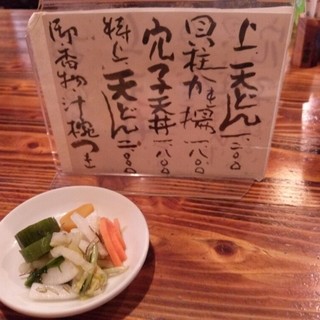 上天どん 一二〇〇
貝柱かき揚 一八〇〇
穴子天丼 一八〇〇
特上天どん 二一〇〇
御香物汁椀つき